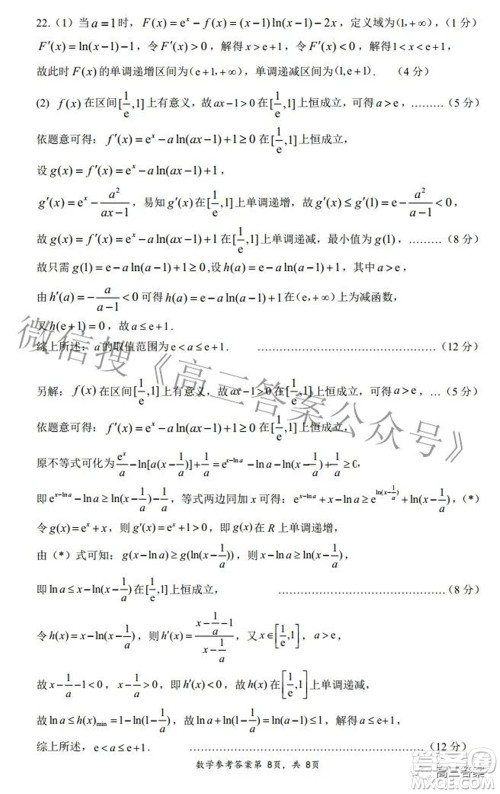 22.（1）当a=1时，F(x)=e^x-f(x)=(x-1)ln(x-1)-2x，定义域为(1,+∞)，（1分）
F′(x)=ln(x-1)-1，令F′(x)>0，解得x>e+1，令F′(x)<0，解得1<x<e+1，
故此时F(x)的单调递增区间为(e+1,+∞)，单调递减区间为(1,e+1)．（4分）
(2) f(x)在区间[1/e,1]上有意义，故ax-1>0在[1/e,1]上恒成立，可得a>e，………（5分）
依题意可得：f′(x)=e^x-aln(ax-1)+1≥0在[1/e,1]上恒成立，
设g(x)=f′(x)=e^x-aln(ax-1)+1，
g′(x)=e^x-a²/(ax-1)，易知g′(x)在[1/e,1]上单调递增，故g′(x)≤g′(1)=e-a²/(a-1)<0，
故g(x)=f′(x)=e^x-aln(ax-1)+1在[1/e,1]上单调递减，最小值为g(1)，………（8分）
故只需g(1)=e-aln(a-1)+1≥0,设h(a)=e-aln(a-1)+1，其中a>e，
由h′(a)=-a/(a-1)<0可得h(a)=e-aln(a-1)+1在(e,+∞)上为减函数，
又h(e+1)=0，故a≤e+1．
综上所述：a的取值范围为e<a≤e+1．…………………………（12分）
另解：f(x)在区间[1/e,1]上有意义，故ax-1>0在[1/e,1]上恒成立，可得a>e，…（5分）
依题意可得：f′(x)=e^x-aln(ax-1)+1≥0在[1/e,1]上恒成立，
原不等式可化为e^x/a-ln[a(x-1/a)]+1/a=e^(x-lna)-lna-ln(x-1/a)+1/a≥0，
即e^(x-lna)-lna≥ln(x-1/a)-1/a，等式两边同加x可得：e^(x-lna)+x-lna≥e^(ln(x-1/a))+ln(x-1/a)，(*)
令g(x)=e^x+x，则g′(x)=e^x+1>0，即g(x)在R上单调递增，
由（*）式可知：g(x-lna)≥g(ln(x-1/a))，则x-lna≥ln(x-1/a)，
即lna≤x-ln(x-1/a)在[1/e,1]上恒成立，…………………………（8分）
令h(x)=x-ln(x-1/a)，则h′(x)=(x-1/a-1)/(x-1/a)，又x∈[1/e,1]，a>e，
故x-1/a-1<0，x-1/a>0，即h′(x)<0，故h(x)在[1/e,1]上单调递减，
故lna≤h(x)min=1-ln(1-1/a)，解得a≤e+1．
综上所述，e<a≤e+1．…………………………（12分）
数学参考答案第 8页，共 8页
微信搜《高三答案公众号》
高三答案